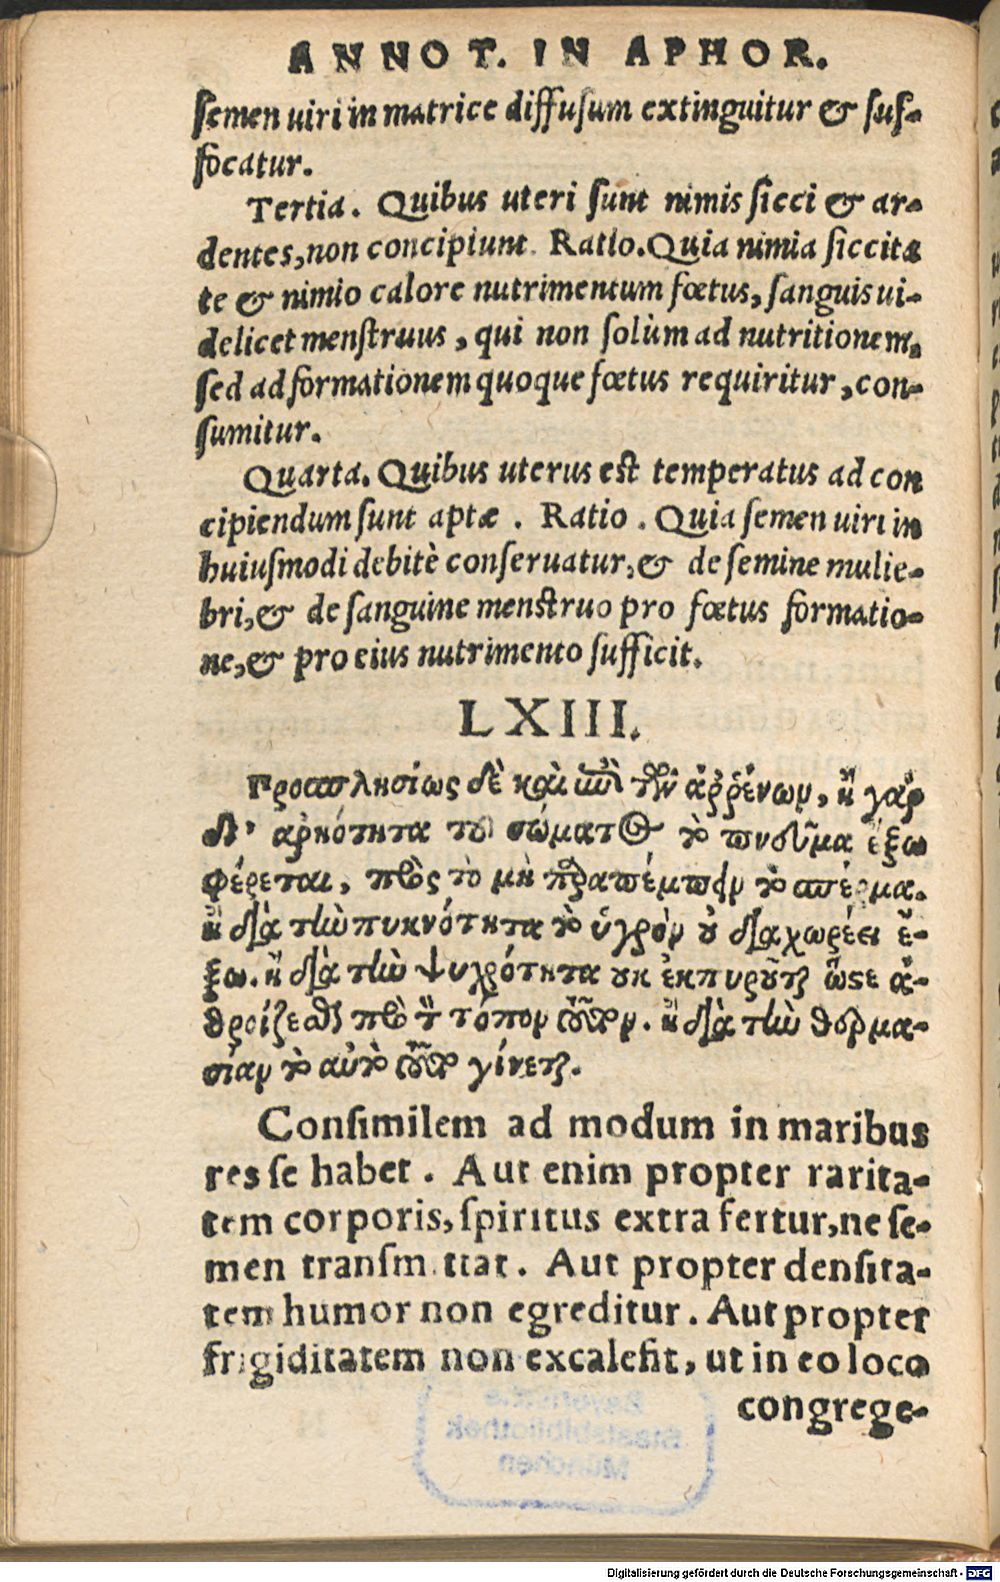 ANNOT. IN APHOR.
semen uiri in matrice diffusum extinguitur & suf-
focatur.
Tertia. Quibus uteri sunt nimis sicci & ar-
dentes, non concipiunt. Ratio. Quia nimia siccita
te & nimio calore nutrimentum fœtus, sanguis ui-
delicet menstruus, qui non solùm ad nutritionem,
sed ad formationem quoque fœtus requiritur, con-
sumitur.
Quarta. Quibus uterus est temperatus ad con
cipiendum sunt aptæ. Ratio. Quia semen uiri in
huiusmodi debitè conseruatur, & de semine mulie-
bri, & de sanguine menstruo pro fœtus formatio-
ne, & pro eius nutrimento sufficit.
LXIII.
Γροπλησίως δὲ καὶ ἐπὶ τῶν ἀῤῥένων, ἢ γὰρ
δι' ἀρκότητα τοῦ σώματος τὸ πνεῦμα ἔξω
φέρεται, πρὸς τὸ μὴ παραπέμπειν τὸ σπέρμα.
ἢ διὰ τὴν πυκνότητα τὸ ὑγρὸν οὐ διαχωρέει ἔ-
ξω. ἢ διὰ τὴν ψυχρότητα οὐκ ἐκπυροῦται ὥστε ἀ-
θροίζεσθαι πρὸς τὸν τόπον τοῦτον. ἢ διὰ τὴν θερμα-
σίαν τὸ αὐτὸ τοῦτο γίνεται.
Consimilem ad modum in maribus
res se habet. Aut enim propter rarita-
tem corporis, spiritus extra fertur, ne se-
men transmittat. Aut propter densita-
tem humor non egreditur. Aut propter
frigiditatem non excalefit, ut in eo loco
congrege-
Bayerische
Staatsbibliothek
München
Digitalisierung gefördert durch die Deutsche Forschungsgemeinschaft - DFG